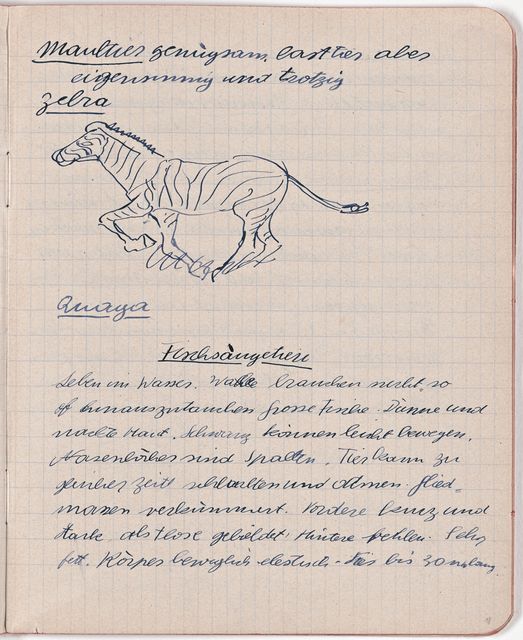 Maultier genügsam, lasttier aber
eigensinnig und trotzig
Zebra
Quaga
Fischsäugetiere
Leben im Wasser. Wahle brauchen nicht so
oft hinauszutauchen grosse Fische. Dünne und
nackte Haut. Schwanz können leicht bewegen.
Nasenlöcher sind Spalten. Tier kann zu
gleicher Zeit schlucken und atmen. Glied-
massen verkümmert. Vordere kurz und
stark als flosse gebildet, Hintere fehlen. Sehr
fett. Körper beweglich elastisch - bis 30 m lang.